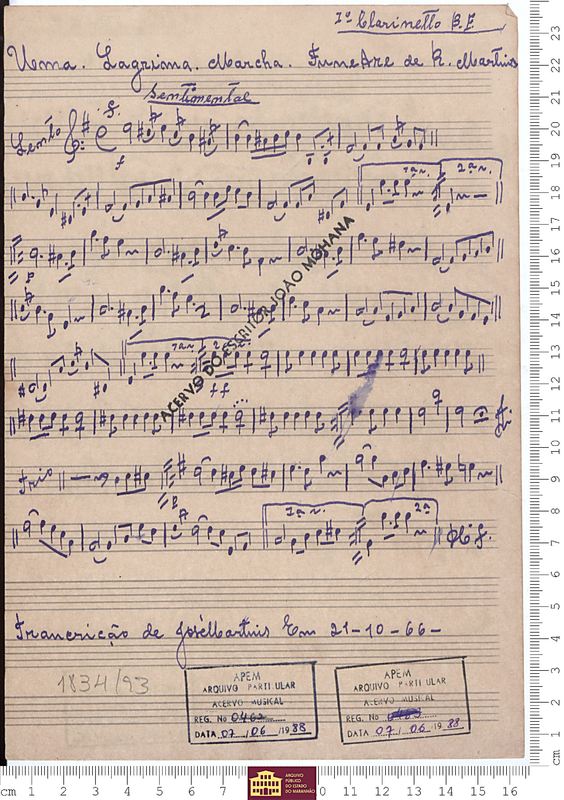 1º Clarinetto B.F
Uma. Lagrima. Marcha. Funebre de R. Martins
Sentimental
Lento
f
1ª n.
2ª n.
p
ACERVO DO ESCRITOR JOÃO MOHANA
1ª n.
2ª n.
ff
Fi
Trio
p
1ª n.
2ª
Trancrição de José Martins Em 21-10-66-
1834/93
APEM
ARQUIVO PARTICULAR
ACERVO MUSICAL
REG. No 0462
DATA 07 / 06 / 1988
APEM
ARQUIVO PARTICULAR
ACERVO MUSICAL
REG. No
DATA 07 / 06 / 1988
cm 1 2 3 4 5 6 7 8 9 10 11 12 13 14 15 16
cm 1 2 3 4 5 6 7 8 9 10 11 12 13 14 15 16 17 18 19 20 21 22 23
ARQUIVO
PÚBLICO
DO ESTADO
DO MARANHÃO